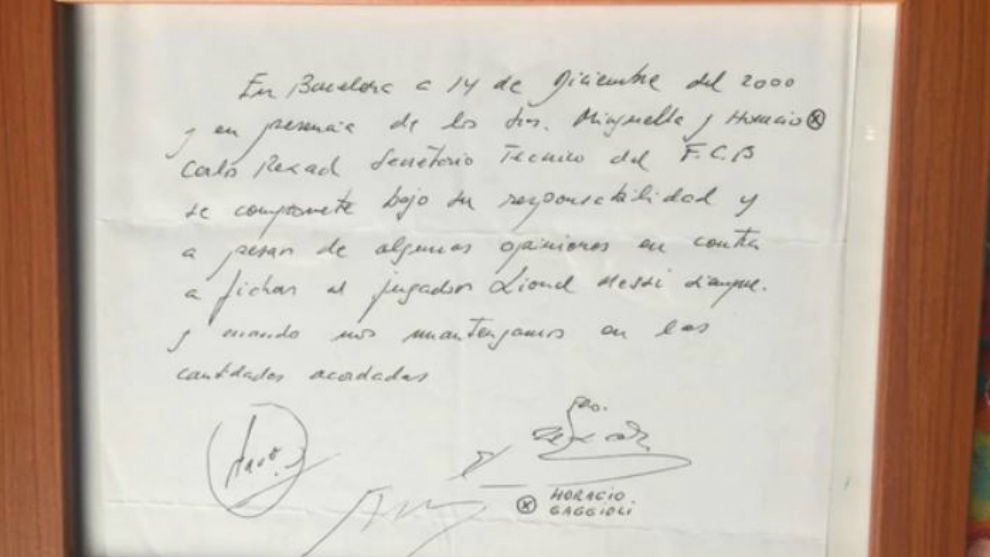 En Barcelona a 14 de Diciembre del 2000
y en presencia de los Sres. Minguella y Horacio ⊗
Carlos Rexach Secretario Técnico del F.C.B
se compromete bajo su responsabilidad y
a pesar de algunas opiniones en contra
a fichar al jugador Lionel Messi siempre.
y cuando nos mantengamos en las
cantidades acordadas
Fdo.
⊗ HORACIO
GAGGIOLI